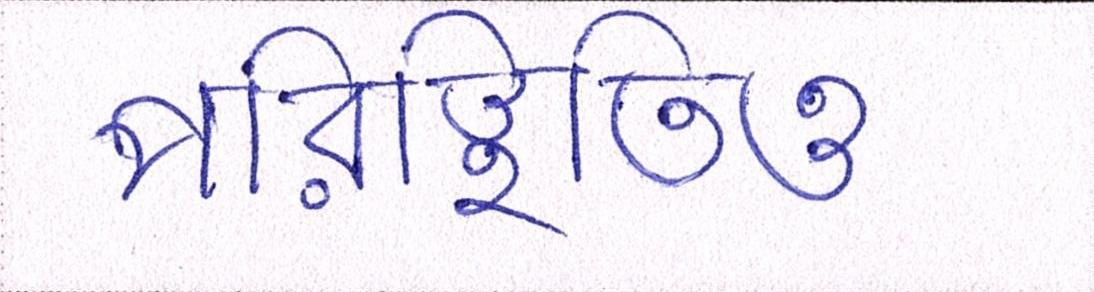 পরিস্থিতিও